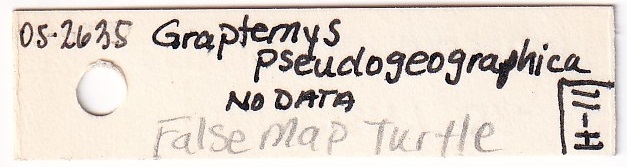 OS-2635 Graptemys
pseudogeographica
NO DATA
False Map Turtle
H-11